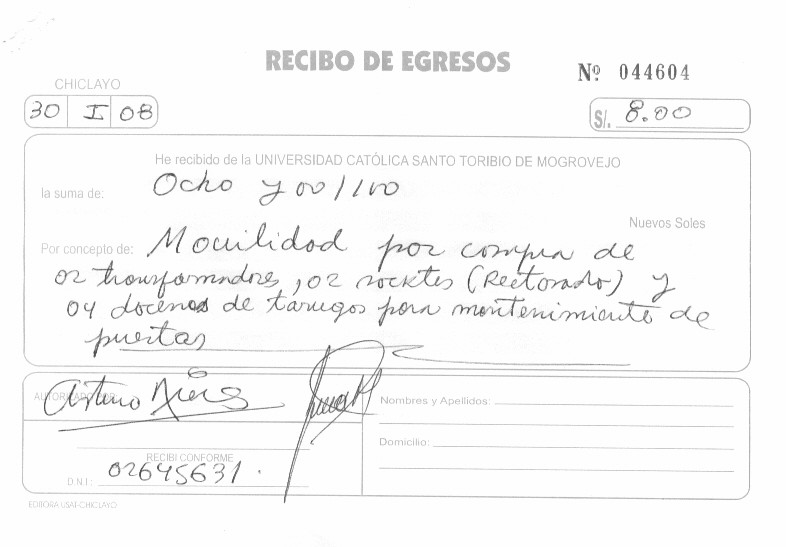 RECIBO DE EGRESOS
Nº 044604
CHICLAYO
30 I 08
S/. 8.00
He recibido de la UNIVERSIDAD CATÓLICA SANTO TORIBIO DE MOGROVEJO
la suma de: Ocho y 00/100
Nuevos Soles
Por concepto de: Movilidad por compra de
02 transformadores, 02 socktes (Rectorado) y
04 docenas de tarugos para mantenimiento de
puertas
AUTORIZADO POR
Arturo
Nombres y Apellidos:
Domicilio:
RECIBI CONFORME
D.N.I: 02645631.
EDITORA USAT-CHICLAYO